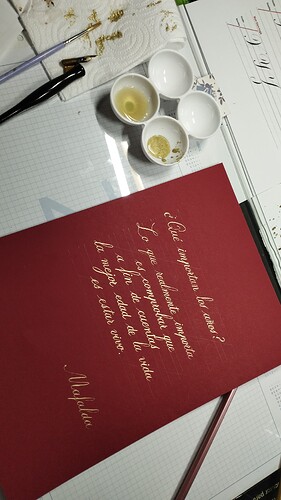 ¿Qué importan los años?
Lo que realmente importa
es comprobar que
a fin de cuentas
la mejor edad de la vida
es estar vivo.
Mafalda